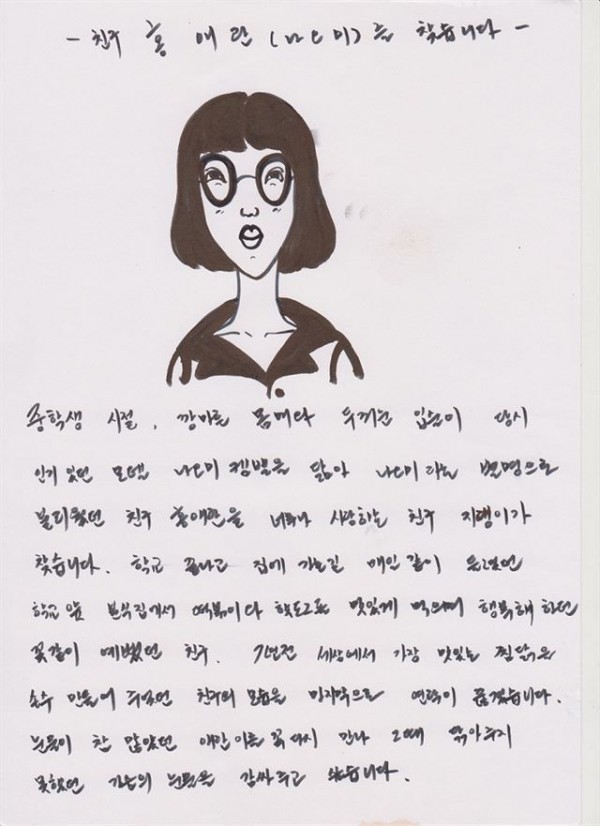 - 친구 홍애란 (나오미)를 찾습니다 -
중학생 시절, 깡마른 몸매와 두꺼운 입술이 당시
인기 있던 모델 나오미 캠벨을 닮아 나오미 라는 별명으로
불리웠던 친구 홍애란을 너무나 사랑하는 친구 지랭이가
찾습니다. 학교 끝나고 집에 가는길 매일 같이
학교 앞 분식집에서 떡볶이와 핫도그를 맛있게 먹으며 행복해 하던
꽃같이 예뻤던 친구. 7년전 세상에서 가장 맛있는 찜닭을
손수 만들어 주었던 친구의 모습을 마지막으로 연락이 끊겼습니다.
눈물이 참 많았던 애란 이를 꼭 다시 만나 그때 닦아주지
못했던 가슴의 눈물을 감싸주고 싶습니다.